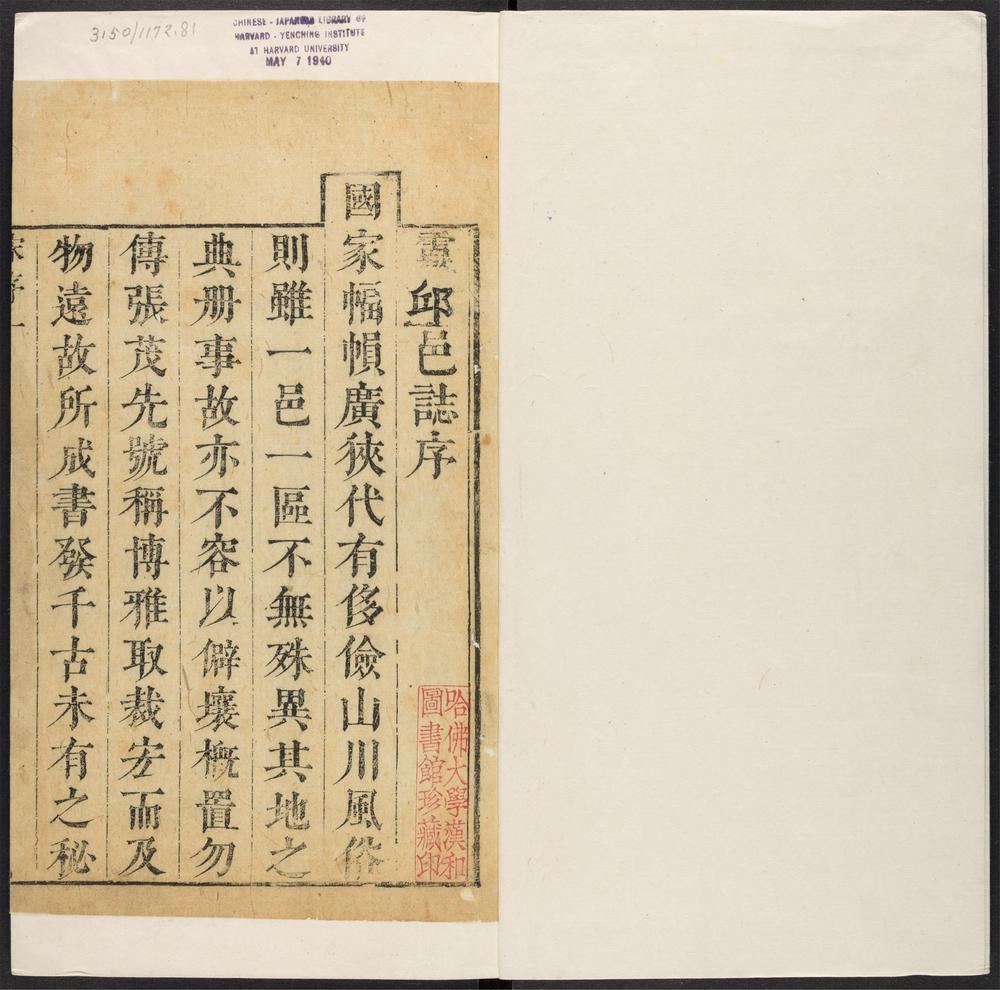 3150/1172.81
CHINESE - JAPANESE LIBRARY OF
HARVARD - YENCHING INSTITUTE
AT HARVARD UNIVERSITY
MAY 7 1940
靈邱邑誌序
國家幅幀廣狹代有侈儉山川風俗
則雖一邑一區不無殊異其地之
典册事故亦不容以僻壤槪置勿
傳張茂先號稱博雅取裁宏而及
物遠故所成書發千古未有之秘
宋序一
哈佛大學漢和
圖書館珍藏印